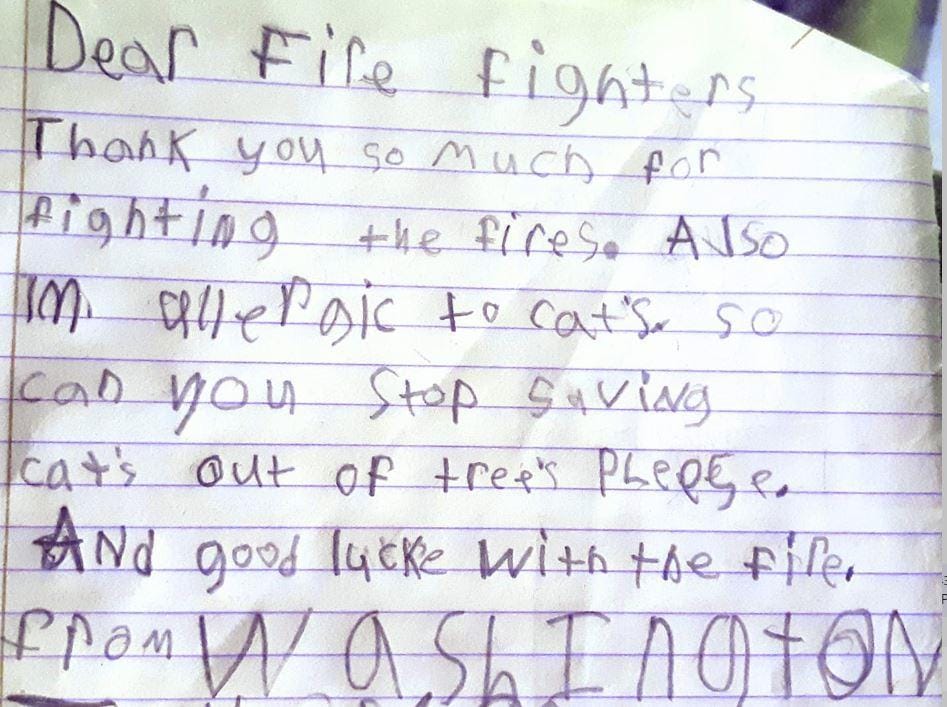 Dear Fire fighters
Thank you so much for
fighting the fires. Also
im allergic to cat's. so
can you Stop saving
cat's out of tree's PLeese.
ANd good lucke with the fire.
from WashIngtoN